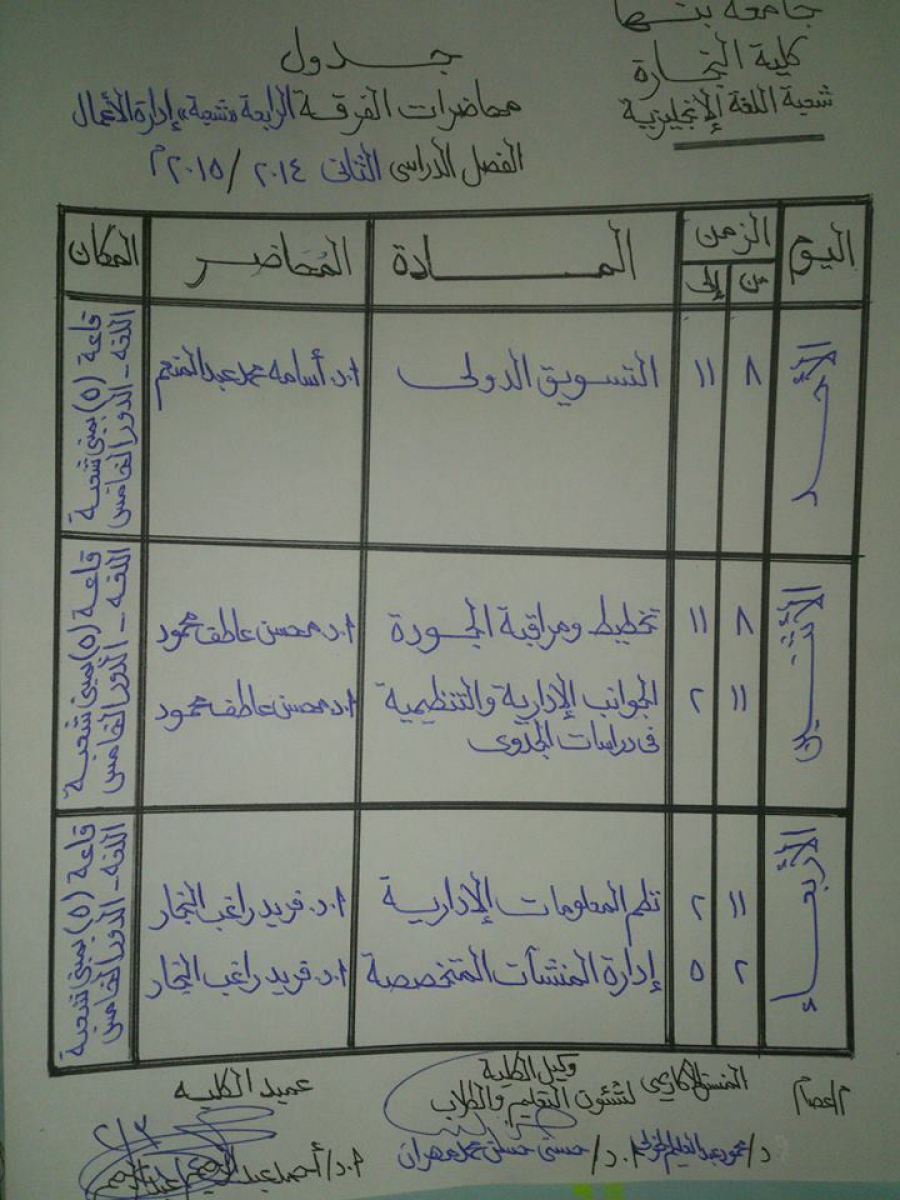 جامعة بنها
كلية التجارة
شعبة اللغة الإنجليزية
جدول
محاضرات الفرقة الرابعة "شعبة" إدارة الأعمال
الفصل الدراسى الثانى ٢٠١٤ / ٢٠١٥م
اليوم الزمن المادة المُحاضر المكان
من إلى
الأحد ٨ ١١ التسويق الدولى ا.د. أسامه محمد عبد المنعم قاعة (٥) بمبنى شعبة
اللغه - الدور الخامس
الأثنين ٨ ١١ تخطيط ومراقبة الجودة ا.د. محسن عاطف محمود قاعة (٥) بمبنى شعبة
اللغه - الدور الخامس
١١ ٢ الجوانب الإدارية والتنظيمية ا.د. محسن عاطف محمود
فى دراسات الجدوى
الأربعاء ١١ ٢ نظم المعلومات الإدارية ا.د. فريد راغب النجار قاعة (٥) بمبنى شعبة
اللغه - الدور الخامس
٢ ٥ إدارة المنشآت المتخصصة ا.د. فريد راغب النجار
وكيل الكلية
عميد الكليه
لشئون التعليم والطلاب
ا.د/ حسنى حسن محمد مهران
ا.د/ أحمد